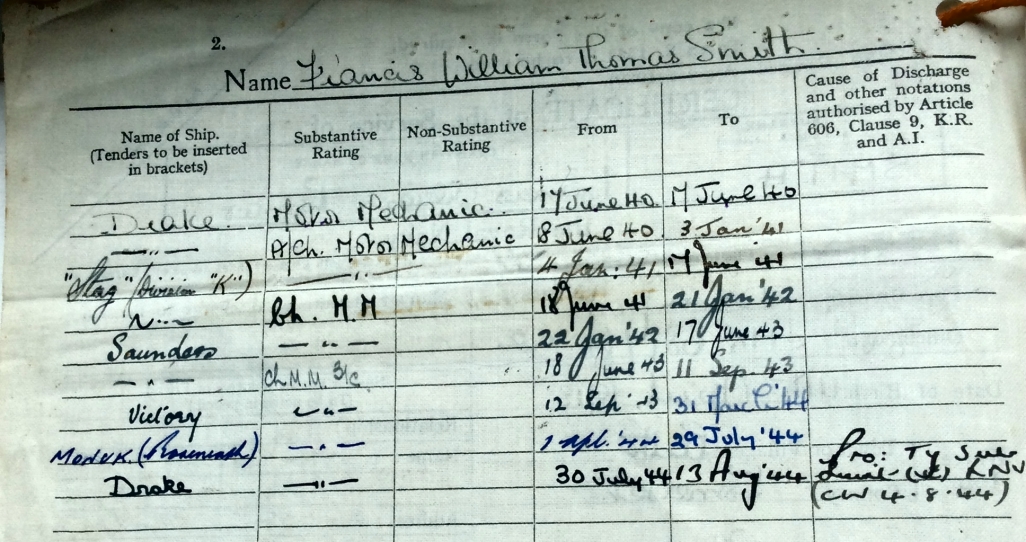 2.
Name Francis William Thomas Smith.
Name of Ship. (Tenders to be inserted in brackets) Substantive Rating Non-Substantive Rating From To Cause of Discharge and other notations authorised by Article 606, Clause 9, K.R. and A.I.
Drake Motor Mechanic. 17 June 40. 17 June 40
— " — A/Ch. Motor Mechanic 18 June 40. 3 Jan '41
"Stag" (Division "K") — " — 4 Jan: 41 17 June 41
— " — Ch. M.M 18 June 41 21 Jan '42
Saunders — " — 22 Jan '42 17 June 43
— " — Ch M.M. 3/c 18 June 43 11 Sep. 43
Victory — " — 12 Sep 43 31 March '44
(Roseneath) — " — 1 Apl. '44 29 July '44
Drake — " — 30 July 44 13 Aug '44 Pro: Ty Sub
Lieut (E) RNV
(CW 4.8.44)